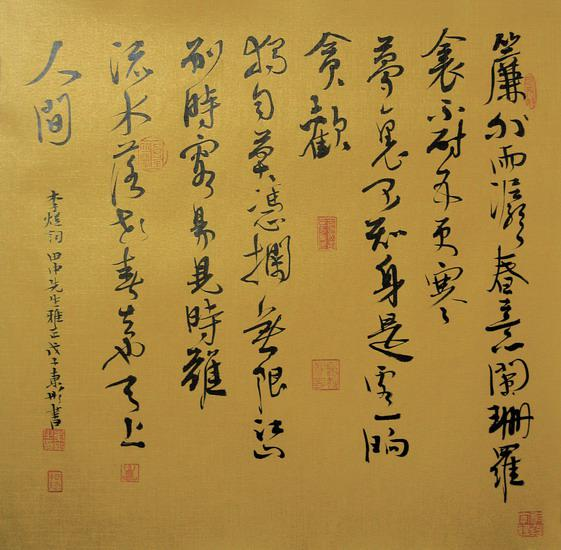 簾外雨潺潺春意闌珊羅
衾不耐五更寒
夢裏不知身是客一晌
貪歡
獨自莫憑欄無限江山
別時容易見時難
流水落花春去也天上
人間
李煜詞 田中先生雅正 戊子東彬書